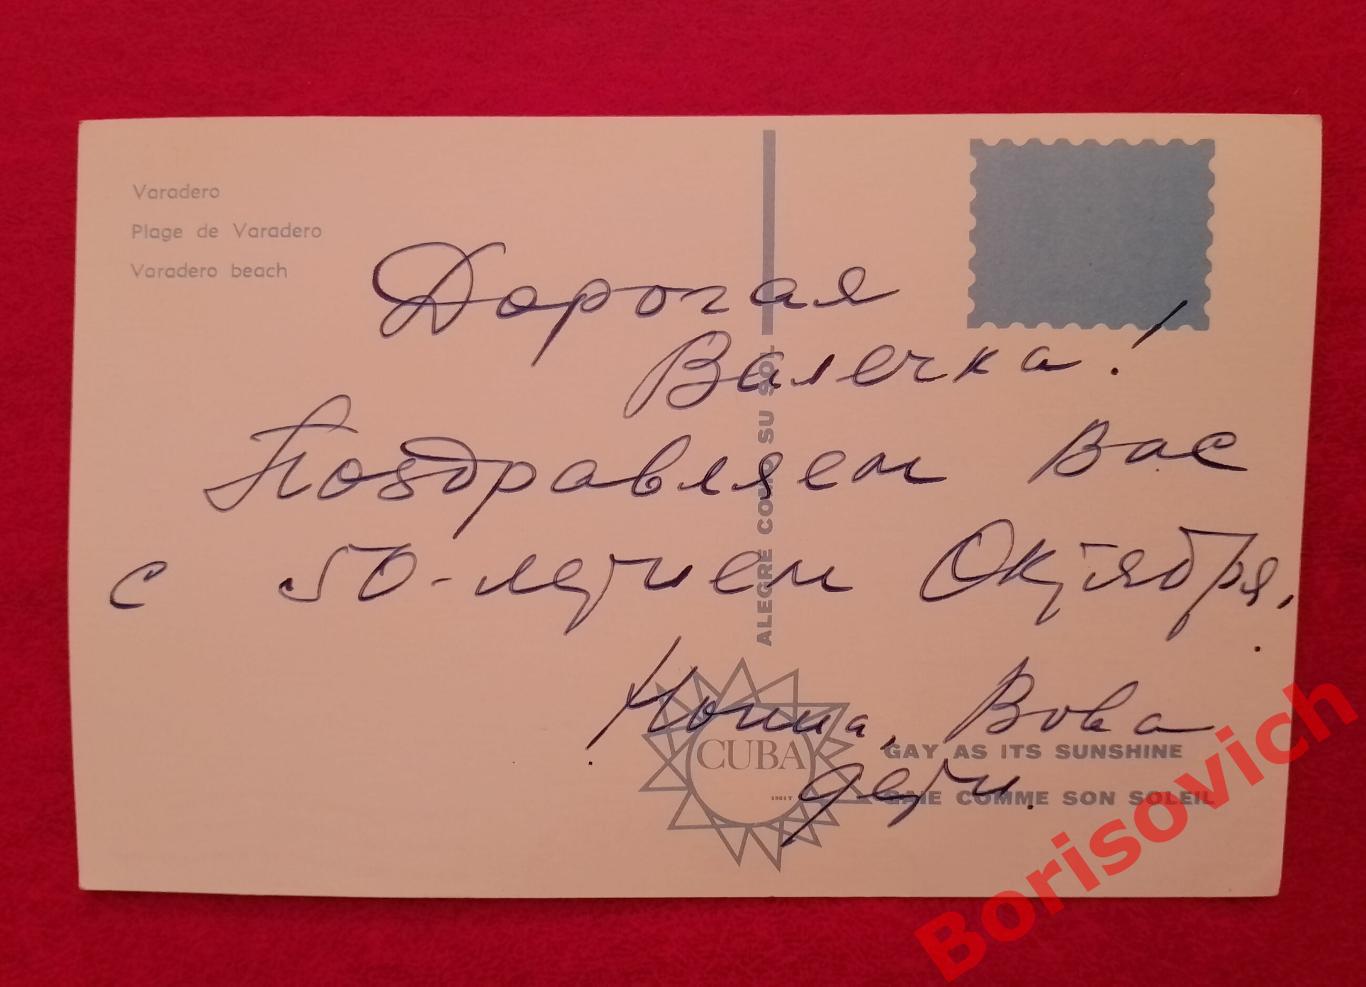 Varadero
Plage de Varadero
Varadero beach
Дорогая
Валечка!
Поздравляем Вас
с 50-летием Октября.
Нонна, Вова
дети.
ALEGRE COMO SU SOL
CUBA
GAY AS ITS SUNSHINE
GAIE COMME SON SOLEIL
Borisovich